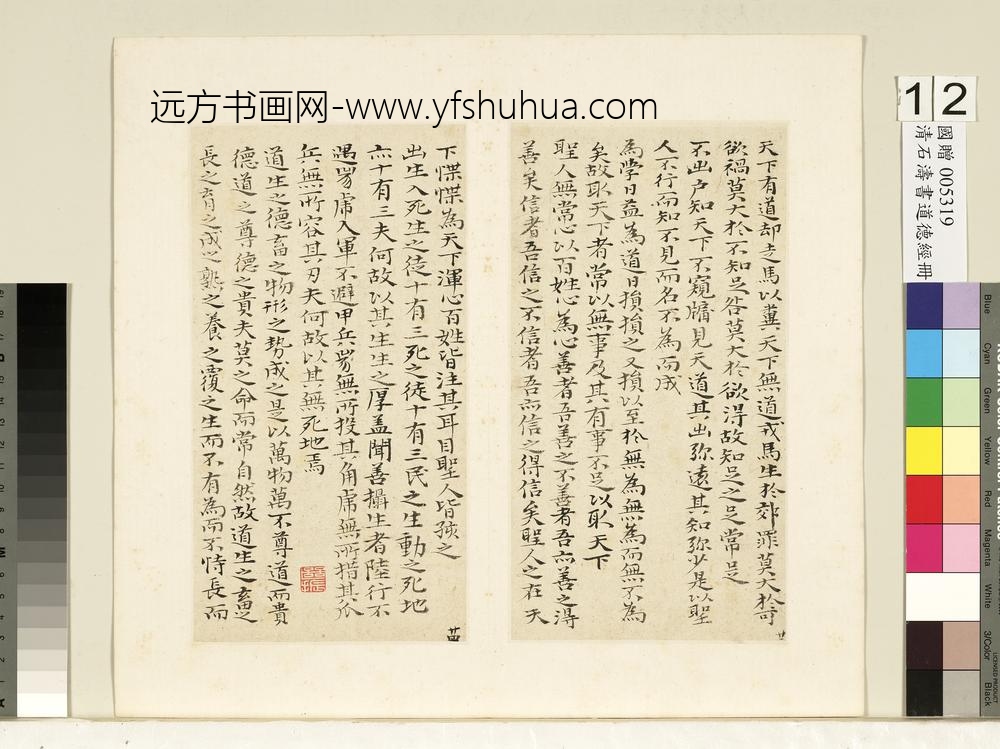 远方书画网-www.yfshuhua.com
12
國贈 005319
清石濤書道德經冊
天下有道却走馬以糞天下無道戎馬生於郊罪莫大於可
欲禍莫大於不知足咎莫大於欲得故知足之足常足
不出户知天下不窺牖見天道其出弥遠其知弥少是以聖
人不行而知不見而名不為而成
為學日益為道日損損之又損以至於無為無為而無不為
矣故取天下者常以無事及其有事不足以取天下
聖人無常心以百姓心為心善者吾善之不善者吾亦善之得
善矣信者吾信之不信者吾亦信之得信矣聖人之在天
廿
下惵惵為天下渾心百姓皆注其耳目聖人皆孩之
出生入死生之徒十有三死之徒十有三民之生動之死地
亦十有三夫何故以其生生之厚盖聞善攝生者陸行不
遇兕虎入軍不避甲兵兕無所投其角虎無所措其爪
兵無所容其刃夫何故以其無死地焉
道生之德畜之物形之勢成之是以萬物萬不尊道而貴
德道之尊德之貴夫莫之命而常自然故道生之畜之
長之育之成之熟之養之覆之生而不有為而不恃長而
Blue
Cyan
Green
Yellow
Red
Magenta
White
3/Color
Black